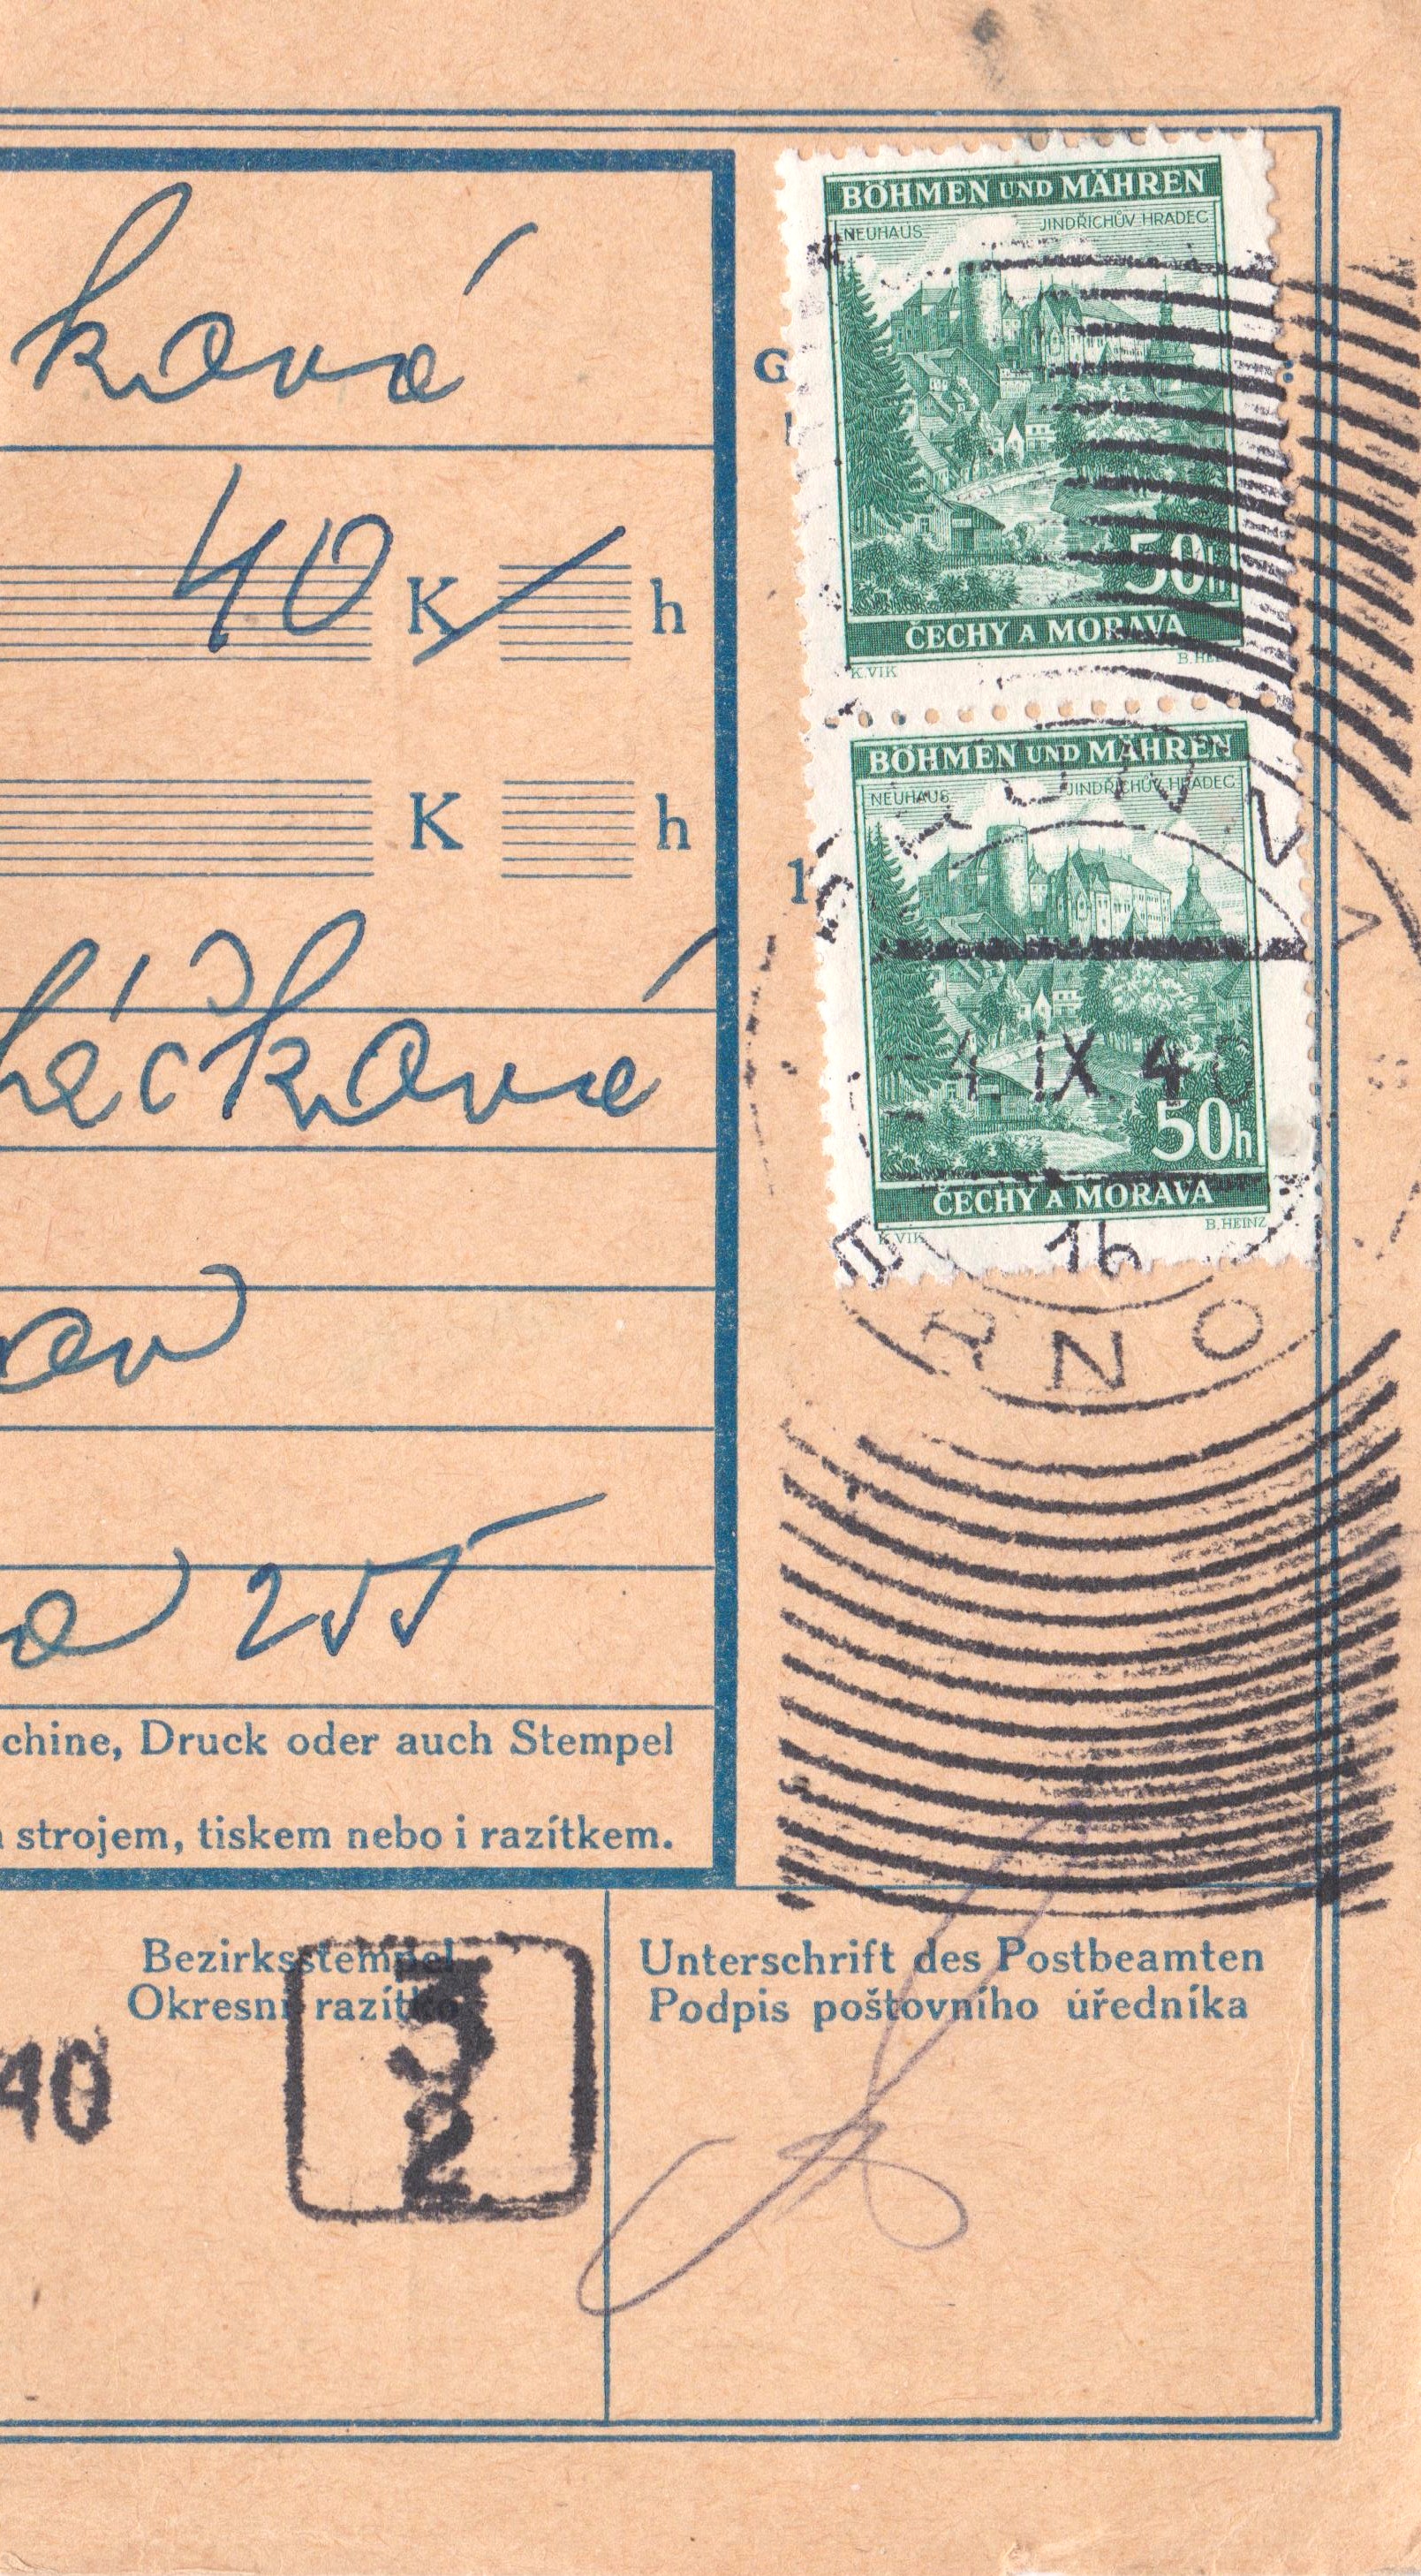 ková
40 K h
K h
háčková
ov
a 255
chine, Druck oder auch Stempel
strojem, tiskem nebo i razítkem.
G
BÖHMEN UND MÄHREN
NEUHAUS JINDŘICHŮV HRADEC
50h
ČECHY A MORAVA
K.VIK B.HEINZ
BÖHMEN UND MÄHREN
NEUHAUS JINDŘICHŮV HRADEC
1
-4. IX 4
50h
ČECHY A MORAVA
K.VIK B.HEINZ
16
BRÜNN
BRNO
Bezirksstempel
Okresní razítko
40
3
2
Unterschrift des Postbeamten
Podpis poštovního úředníka